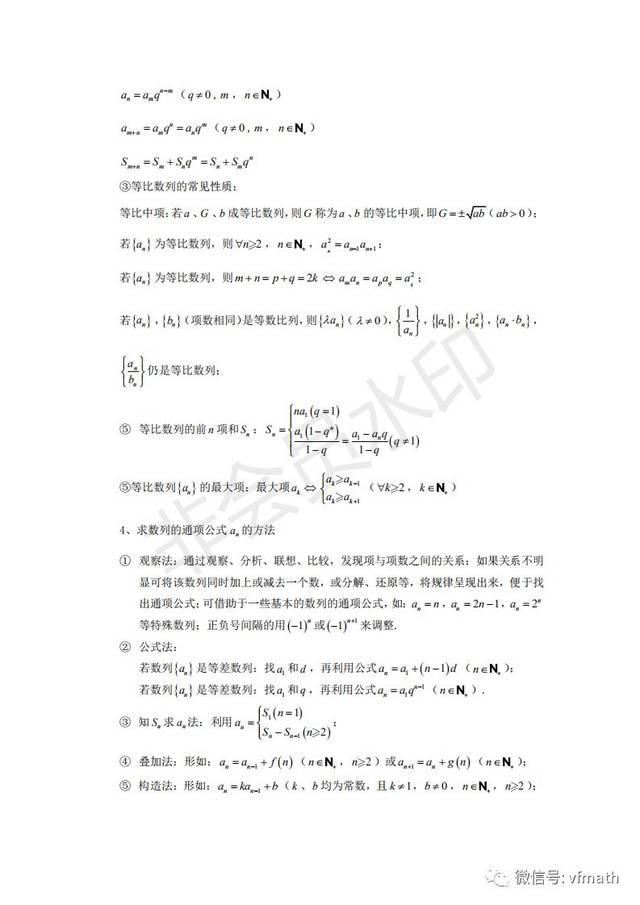 aₙ = aₘqⁿ⁻ᵐ（q≠0，m，n∈N₊）
aₘ₊ₙ = aₘqⁿ = aₙqᵐ（q≠0，m，n∈N₊）
Sₘ₊ₙ = Sₘ + Sₙqᵐ = Sₙ + Sₘqⁿ
③等比数列的常见性质：
等比中项：若 a、G、b 成等比数列，则 G 称为 a、b 的等比中项，即 G = ±√ab（ab>0）；
若{aₙ}为等比数列，则∀n⩾2，n∈N₊，aₙ² = aₙ₋₁aₙ₊₁；
若{aₙ}为等比数列，则 m+n = p+q = 2k ⇔ aₘaₙ = aₚa_q = aₖ²；
若{aₙ}，{bₙ}（项数相同）是等数比列，则{λaₙ}（λ≠0），{1/aₙ}，{|aₙ|}，{aₙ²}，{aₙ·bₙ}，
{aₙ/bₙ}仍是等比数列；
⑤ 等比数列的前 n 项和 Sₙ：Sₙ = { na₁(q=1)
a₁(1−qⁿ)/(1−q) = (a₁−aₙq)/(1−q) (q≠1)
⑤等比数列{aₙ}的最大项：最大项 aₖ ⇔ { aₖ⩾aₖ₋₁
aₖ⩾aₖ₊₁（∀k⩾2，k∈N₊）
4、求数列的通项公式 aₙ 的方法
① 观察法：通过观察、分析、联想、比较，发现项与项数之间的关系；如果关系不明
显可将该数列同时加上或减去一个数，或分解、还原等，将规律呈现出来，便于找
出通项公式；可借助于一些基本的数列的通项公式，如：aₙ = n，aₙ = 2n−1，aₙ = 2ⁿ
等特殊数列；正负号间隔的用(−1)ⁿ或(−1)ⁿ⁺¹来调整.
② 公式法：
若数列{aₙ}是等差数列：找 a₁ 和 d，再利用公式 aₙ = a₁+(n−1)d（n∈N₊）；
若数列{aₙ}是等比数列：找 a₁ 和 q，再利用公式 aₙ = a₁qⁿ⁻¹（n∈N₊）.
③ 知 Sₙ 求 aₙ 法：利用 aₙ = { S₁(n=1)
Sₙ−Sₙ₋₁(n⩾2)；
④ 叠加法：形如：aₙ = aₙ₋₁+f(n)（n∈N₊，n⩾2）或 aₙ₊₁ = aₙ+g(n)（n∈N₊）；
⑤ 构造法：形如：aₙ = kaₙ₋₁+b（k、b 均为常数，且 k≠1，b≠0，n∈N₊，n⩾2）；
非会员水印
微信号: vfmath